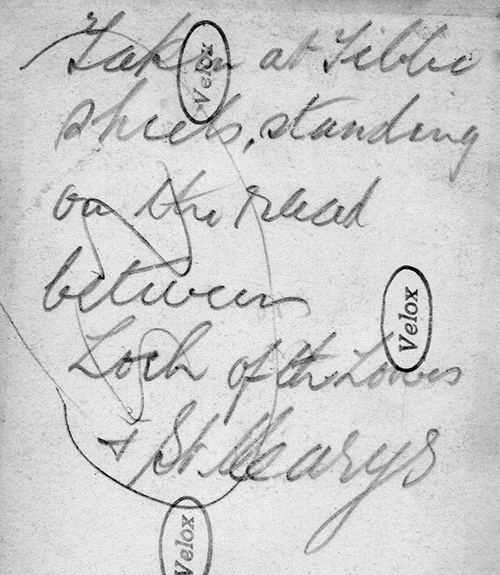 Taken at Tibbie
Shiels, standing
on the road
between
Loch of the Lowes
+ St. Marys
Velox
Velox
Velox